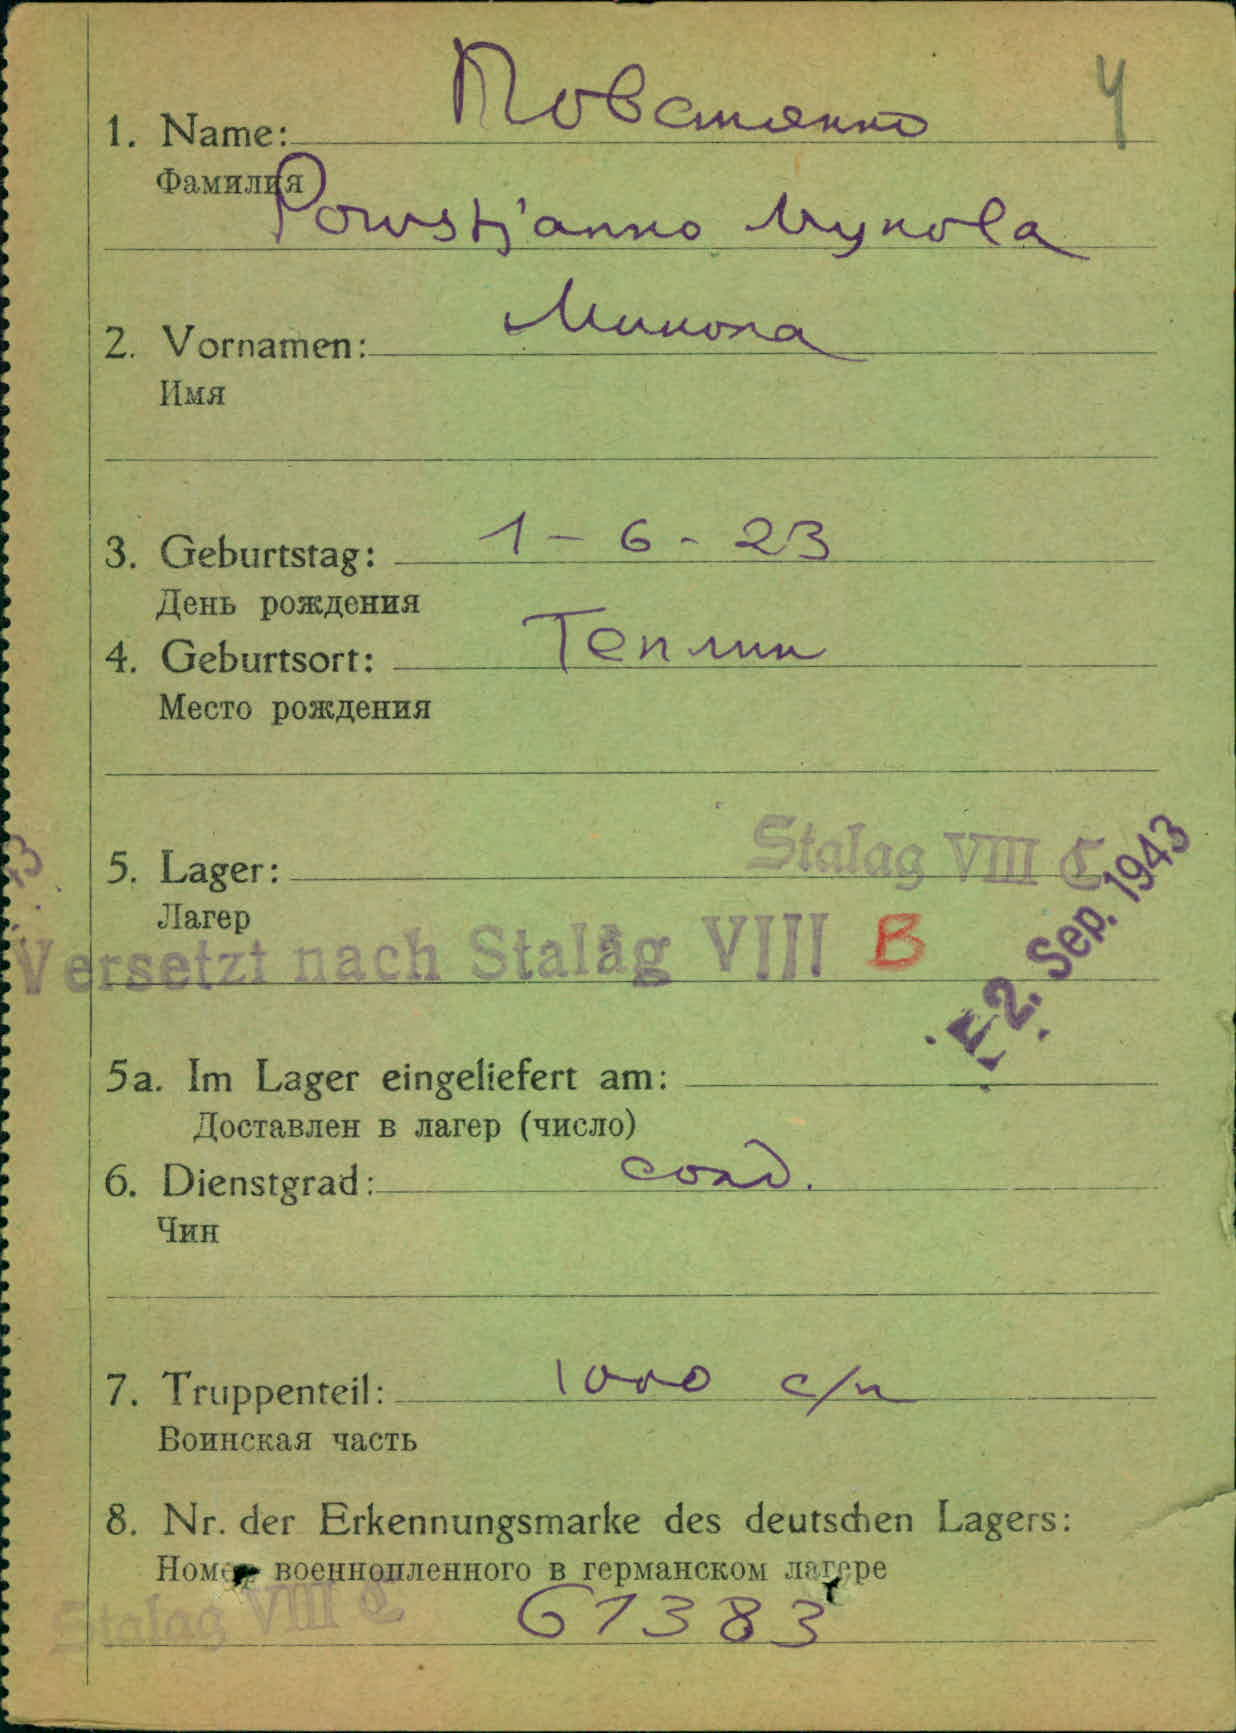 Повстянко
4
1. Name:
Фамилия
Powstjanko Mykola
Микола
2. Vornamen:
Имя
1-6-23
3. Geburtstag:
День рождения
Теплик
4. Geburtsort:
Место рождения
Stalag VIII C
5. Lager:
Лагер
Versetzt nach Stalag VIII B
2. Sep. 1943
5a. Im Lager eingeliefert am:
Доставлен в лагер (число)
6. Dienstgrad: солд.
Чин
7. Truppenteil: 1000 с/п
Воинская часть
8. Nr. der Erkennungsmarke des deutschen Lagers:
Номер военнопленного в германском лагере
Stalag VIII C
61383